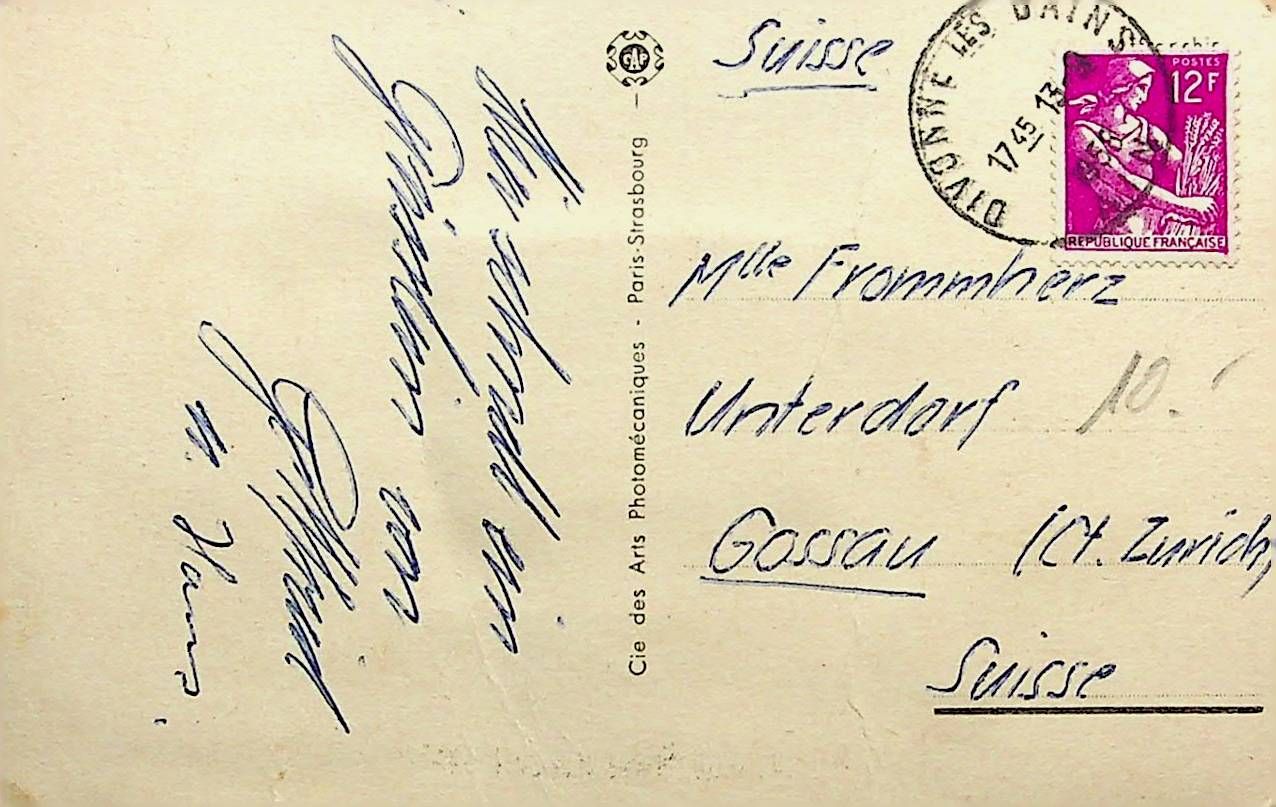 Nur schnell ein
Grüsschen von
Gottfried
u. Hans.
CAP
Cie des Arts Photomécaniques - Paris-Strasbourg
Suisse
DIVONNE LES BAINS
17 45 13
POSTES
12F
REPUBLIQUE FRANÇAISE
Mlle Frommherz
Unterdorf
10.-
Gossau (Ct. Zürich)
Suisse